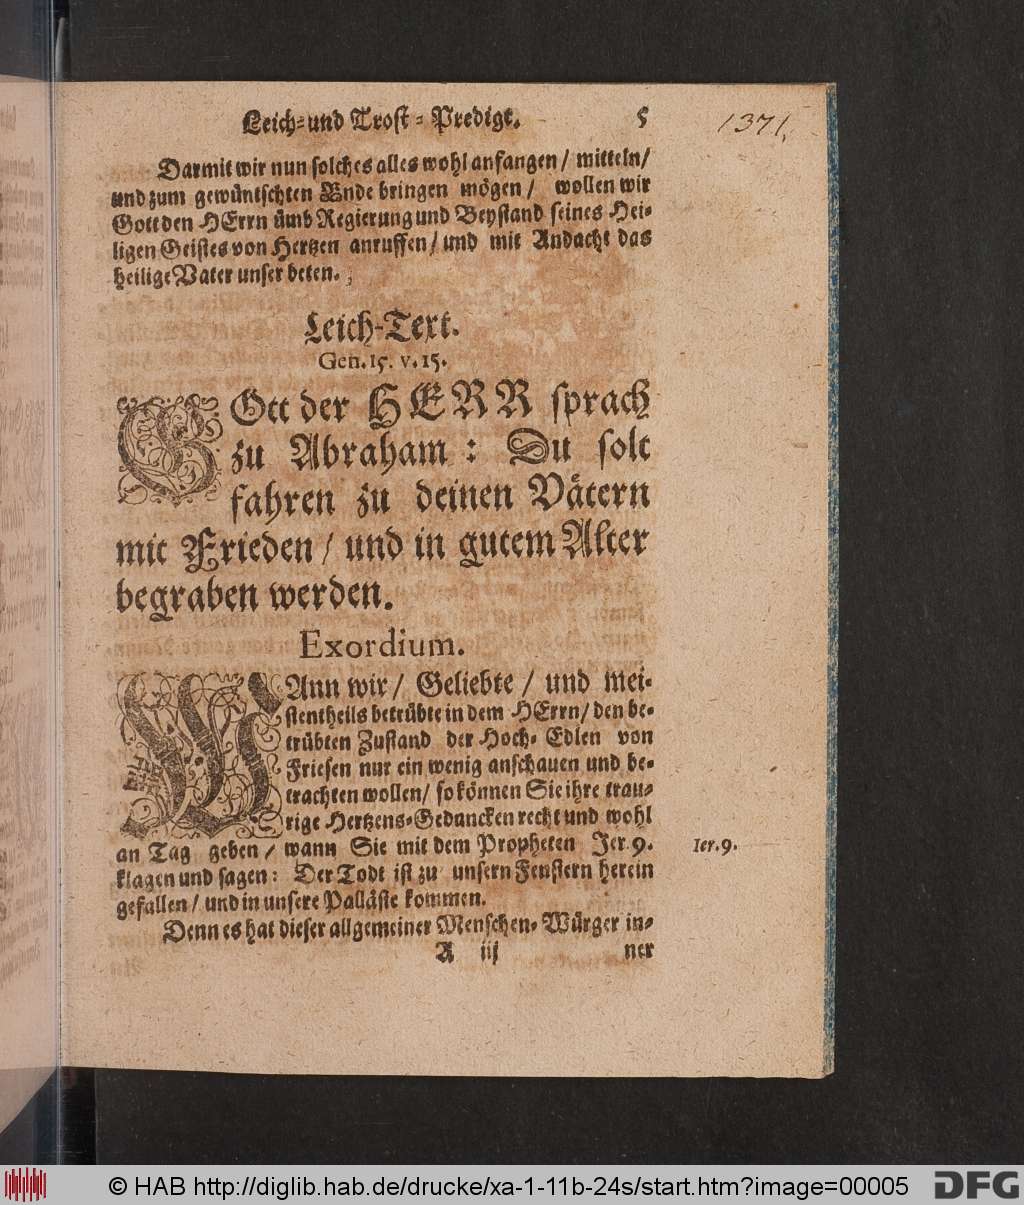 Leich- und Trost-Predigt. 5
1371.
Darmit wir nun solches alles wohl anfangen / mitteln /
und zum gewüntschten Ende bringen mögen / wollen wir
Gott den HErrn ümb Regierung und Beystand seines Hei-
ligen Geistes von Hertzen anruffen / und mit Andacht das
heilige Vater unser beten.
Leich-Text.
Gen. 15. v. 15.
GOtt der HERR sprach
zu Abraham: Du solt
fahren zu deinen Vätern
mit Frieden / und in gutem Alter
begraben werden.
Exordium.
WAnn wir / Geliebte / und mei-
stentheils betrübte in dem HErrn / den be-
trübten Zustand der Hoch-Edlen von
Friesen nur ein wenig anschauen und be-
trachten wollen / so können Sie ihre trau-
rige Hertzens-Gedancken recht und wohl
an Tag geben / wann Sie mit dem Propheten Jer. 9.
Ier. 9.
klagen und sagen: Der Todt ist zu unsern Fenstern herein
gefallen / und in unsere Palläste kommen.
Denn es hat dieser allgemeiner Menschen-Würger in-
A iij ner
© HAB http://diglib.hab.de/drucke/xa-1-11b-24s/start.htm?image=00005
DFG